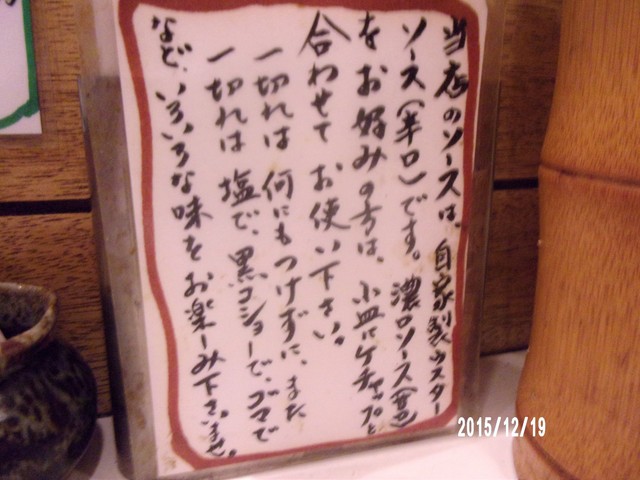 当店のソースは、自家製ウスター
ソース(辛口)です。濃口ソース(甘口)
をお好みの方は、小皿にケチャップと
合わせて お使い下さい。
一切れは 何にもつけずに、また
一切れは 塩で、黒コショーで、ゴマで
など、いろいろな味をお楽しみ下さいませ。
2015/12/19